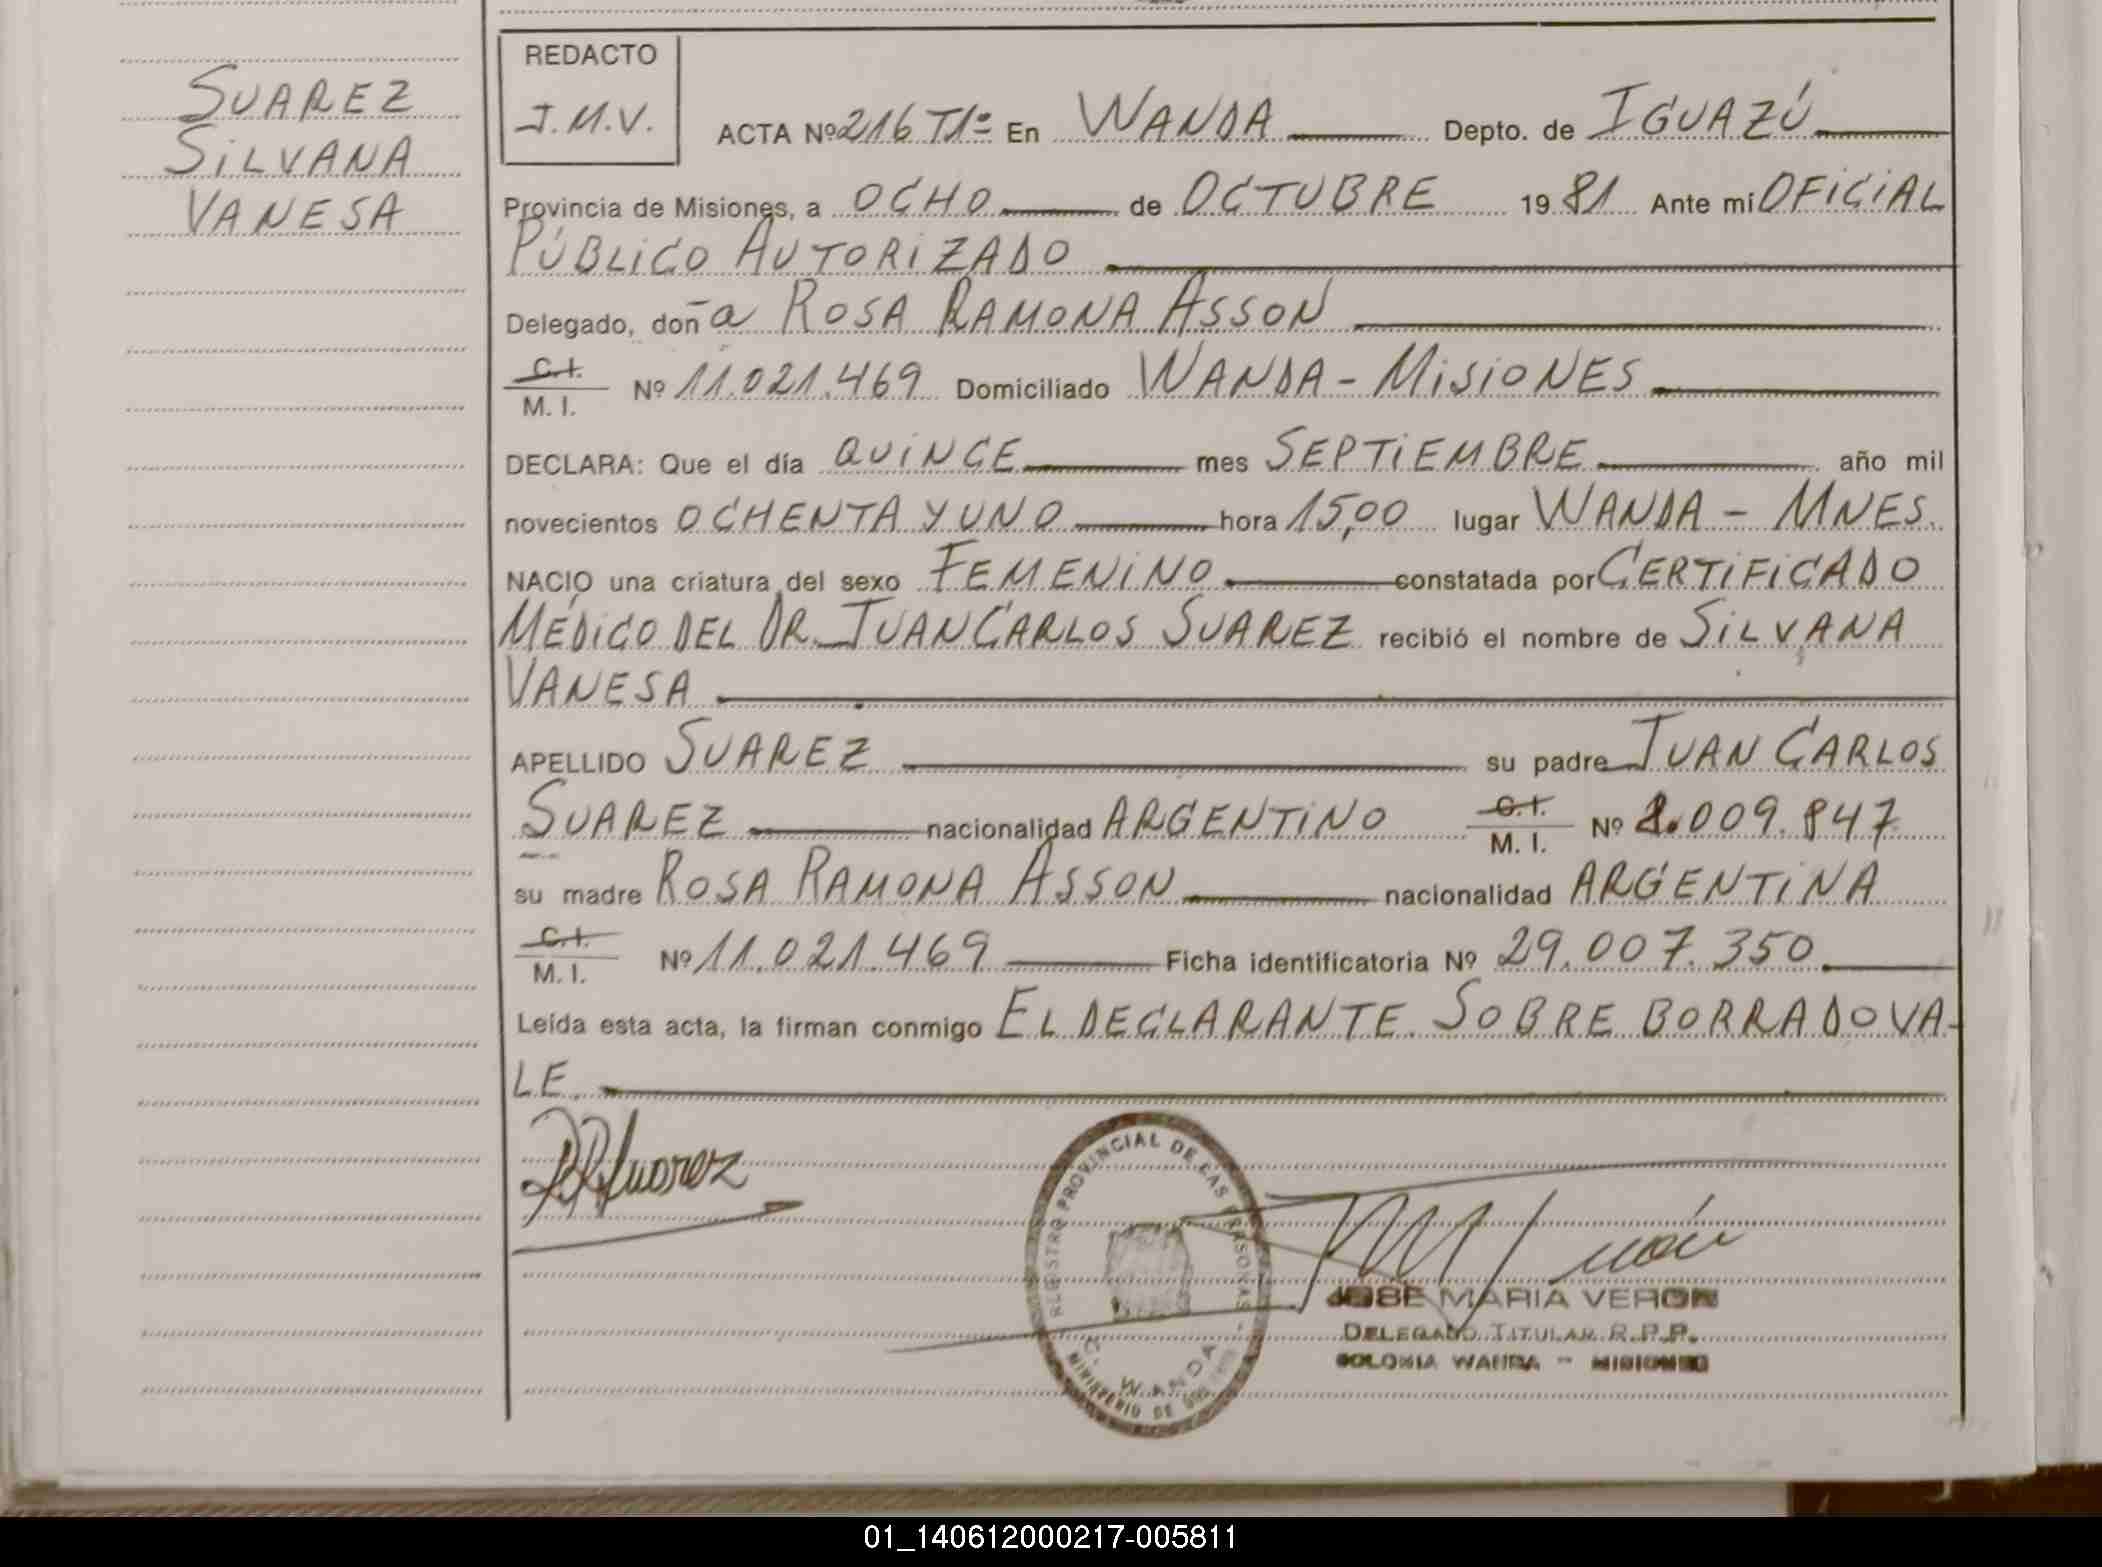 SUAREZ
SILVANA
VANESA
REDACTO
J.M.V.
ACTA Nº 216 T1º En WANDA Depto. de IGUAZÚ
Provincia de Misiones, a OCHO de OCTUBRE 19 81 Ante mí OFICIAL
PÚBLICO AUTORIZADO
Delegado, doña ROSA RAMONA ASSON
C.I.
M. I. Nº 11.021.469 Domiciliado WANDA - MISIONES
DECLARA: Que el día QUINCE mes SEPTIEMBRE año mil
novecientos OCHENTA Y UNO hora 15,00 lugar WANDA - MNES.
NACIO una criatura del sexo FEMENINO constatada por CERTIFICADO
MÉDICO DEL DR. JUAN CARLOS SUAREZ recibió el nombre de SILVANA
VANESA
APELLIDO SUAREZ su padre JUAN CARLOS
SUAREZ nacionalidad ARGENTINO C.I.
M. I. Nº 8.009.847
su madre ROSA RAMONA ASSON nacionalidad ARGENTINA
C.I.
M. I. Nº 11.021.469 Ficha identificatoria Nº 29.007.350
Leída esta acta, la firman conmigo EL DECLARANTE. SOBRE BORRADO VA-
LE.
RRSuarez
REGISTRO PROVINCIAL DE LAS PERSONAS -
C. WANDA
MINISTERIO DE
JOSE MARIA VERON
DELEGADO TITULAR R.P.P.
COLONIA WANDA - MISIONES
01_140612000217-005811